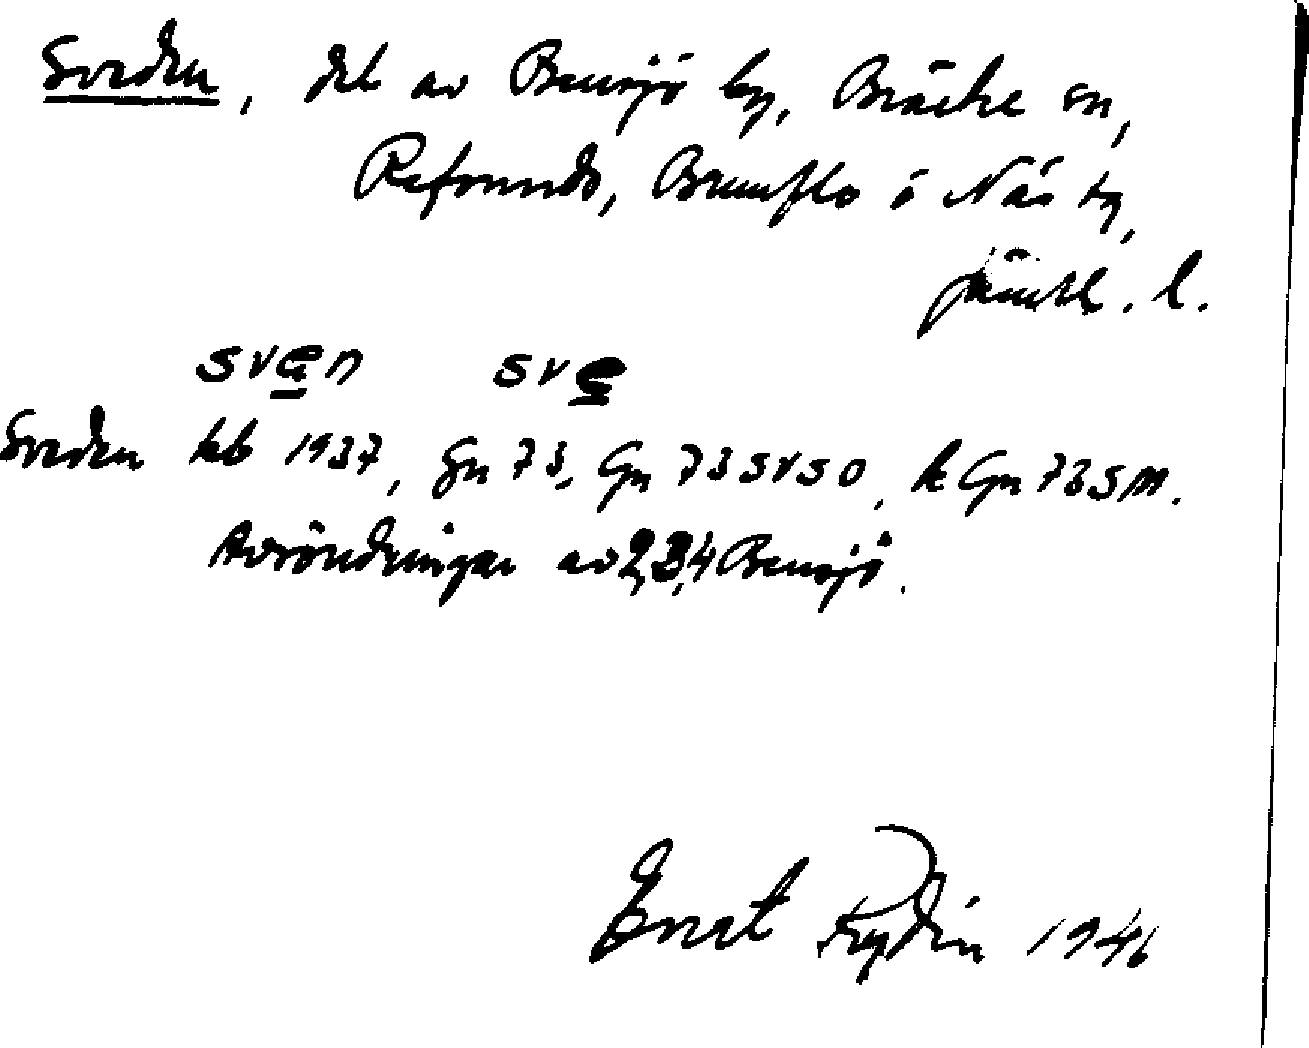 Sveden, del av Bensjö by, Bräcke sn,
Refsunds, Brunflo o Näs tg,
Jämtl. l.
sven sve
Sveden kb 1937, Gn 73, Gn 73 SV SO, k Gn 73 SM.
Avsöndringar av 2,3,4 Bensjö.
Ernst Rydin 1946